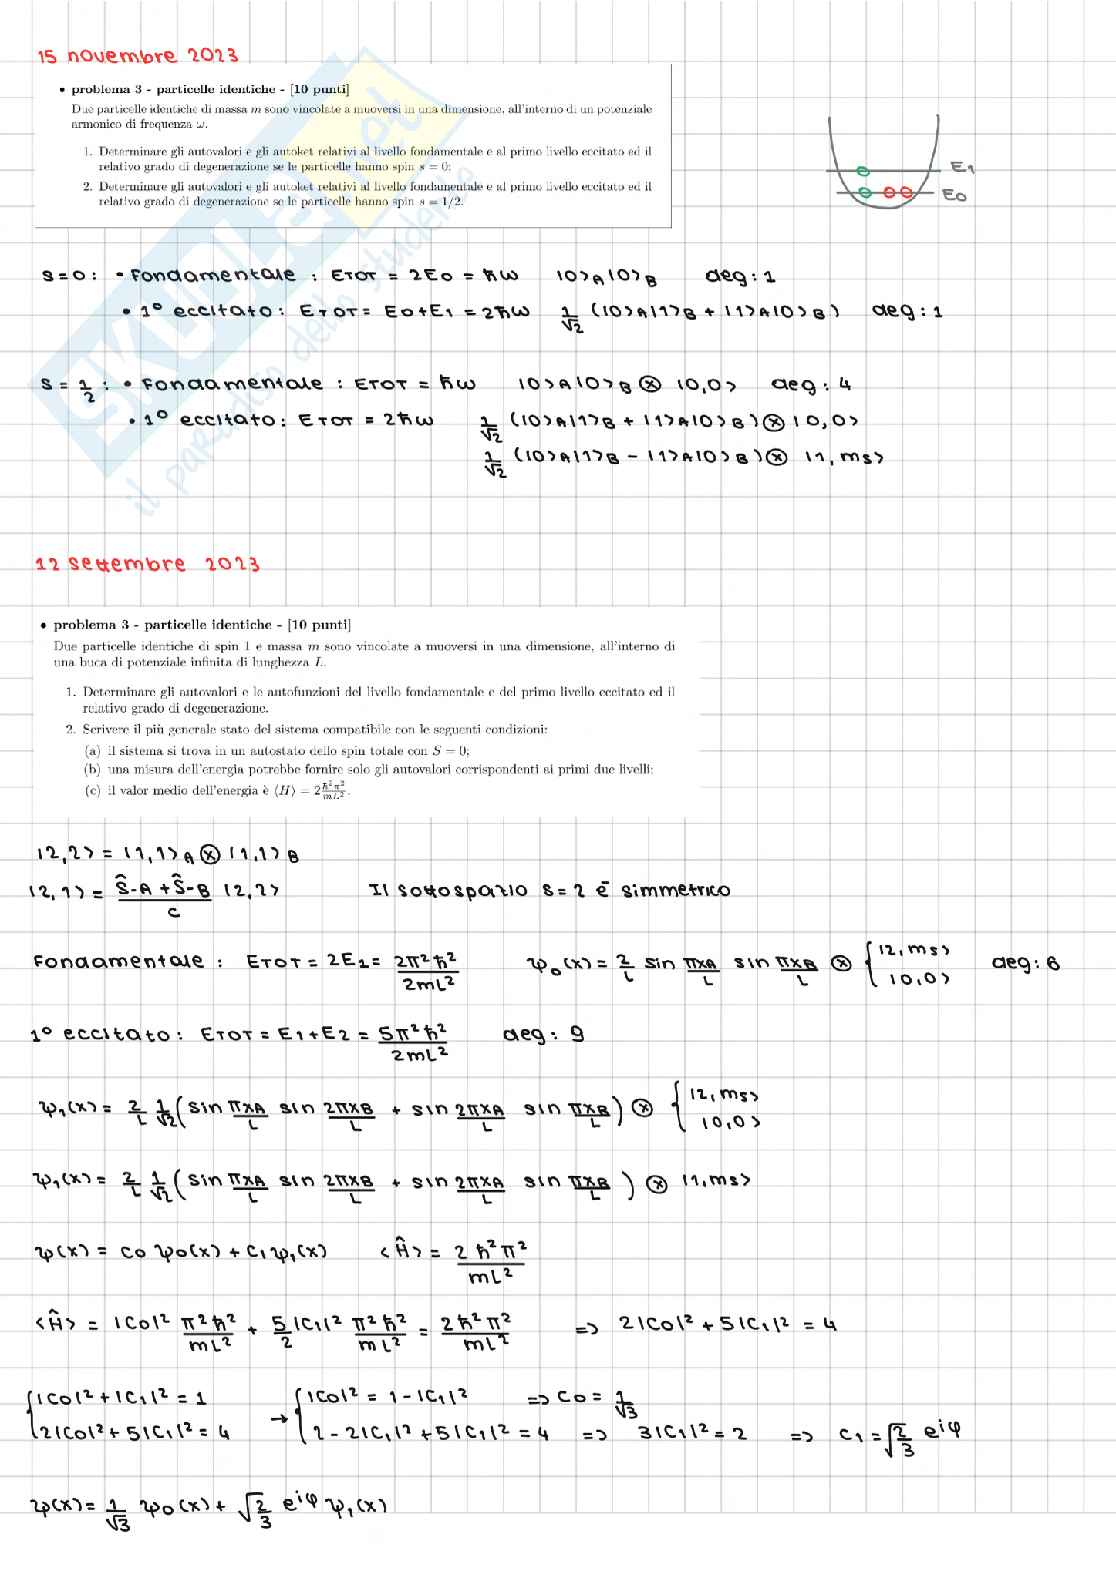 15 novembre 2023
• problema 3 - particelle identiche - [10 punti]
Due particelle identiche di massa m sono vincolate a muoversi in una dimensione, all'interno di un potenziale
armonico di frequenza ω.
1. Determinare gli autovalori e gli autoket relativi al livello fondamentale e al primo livello eccitato ed il
relativo grado di degenerazione se le particelle hanno spin s = 0;
2. Determinare gli autovalori e gli autoket relativi al livello fondamentale e al primo livello eccitato ed il
relativo grado di degenerazione se le particelle hanno spin s = 1/2.
E1
E0
SKUOLA.net
il paradiso dello studente
S=0: • Fondamentale: ETOT = 2E0 = ħω |0>A|0>B deg: 1
• 1° eccitato: ETOT = E0+E1 = 2ħω 1/√2 (|0>A|1>B + |1>A|0>B) deg: 1
S = 1/2: • Fondamentale: ETOT = ħω |0>A|0>B ⊗ |0,0> deg: 4
• 1° eccitato: ETOT = 2ħω 1/√2 (|0>A|1>B + |1>A|0>B) ⊗ |0,0>
1/√2 (|0>A|1>B - |1>A|0>B) ⊗ |1, ms>
12 settembre 2023
• problema 3 - particelle identiche - [10 punti]
Due particelle identiche di spin 1 e massa m sono vincolate a muoversi in una dimensione, all'interno di
una buca di potenziale infinita di lunghezza L.
1. Determinare gli autovalori e le autofunzioni del livello fondamentale e del primo livello eccitato ed il
relativo grado di degenerazione.
2. Scrivere il più generale stato del sistema compatibile con le seguenti condizioni:
(a) il sistema si trova in un autostato dello spin totale con S = 0;
(b) una misura dell'energia potrebbe fornire solo gli autovalori corrispondenti ai primi due livelli;
(c) il valor medio dell'energia è ⟨H⟩ = 2 ħ²π²/mL².
|2,2> = |1,1>A ⊗ |1,1>B
|2,1> = (Ŝ-A + Ŝ-B)/c |2,2> Il sottospazio S=2 è simmetrico
Fondamentale: ETOT = 2E1 = 2π²ħ²/2mL² ψ0(x) = 2/L sin πxA/L sin πxB/L ⊗ { |2,ms> |0,0> deg: 6
1° eccitato: ETOT = E1+E2 = 5π²ħ²/2mL² deg: 9
ψ1(x) = 2/L 1/√2 (sin πxA/L sin 2πxB/L + sin 2πxA/L sin πxB/L) ⊗ { |2,ms> |0,0>
ψ1(x) = 2/L 1/√2 (sin πxA/L sin 2πxB/L + sin 2πxA/L sin πxB/L) ⊗ |1,ms>
ψ(x) = C0 ψ0(x) + C1 ψ1(x) <Ĥ> = 2ħ²π²/mL²
<Ĥ> = |C0|² π²ħ²/mL² + 5/2 |C1|² π²ħ²/mL² = 2ħ²π²/mL² => 2|C0|² + 5|C1|² = 4
{ |C0|² + |C1|² = 1 → { |C0|² = 1 - |C1|² => C0 = 1/√3
2|C0|² + 5|C1|² = 4 2 - 2|C1|² + 5|C1|² = 4 => 3|C1|² = 2 => C1 = √2/3 e^iφ
ψ(x) = 1/√3 ψ0(x) + √2/3 e^iφ ψ1(x)